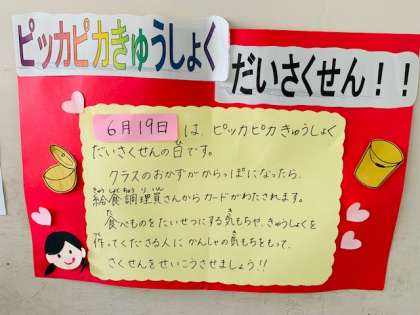 ピッカピカきゅうしょく
だいさくせん！！
6月19日は、ピッカピカきゅうしょく
だいさくせんの日です。
クラスのおかずがからっぽになったら、
給食調理員さんからカードがわたされます。
食べものをたいせつにする気もちや、きゅうしょくを
作ってくださる人にかんしゃの気もちをもって、
さくせんをせいこうさせましょう!!